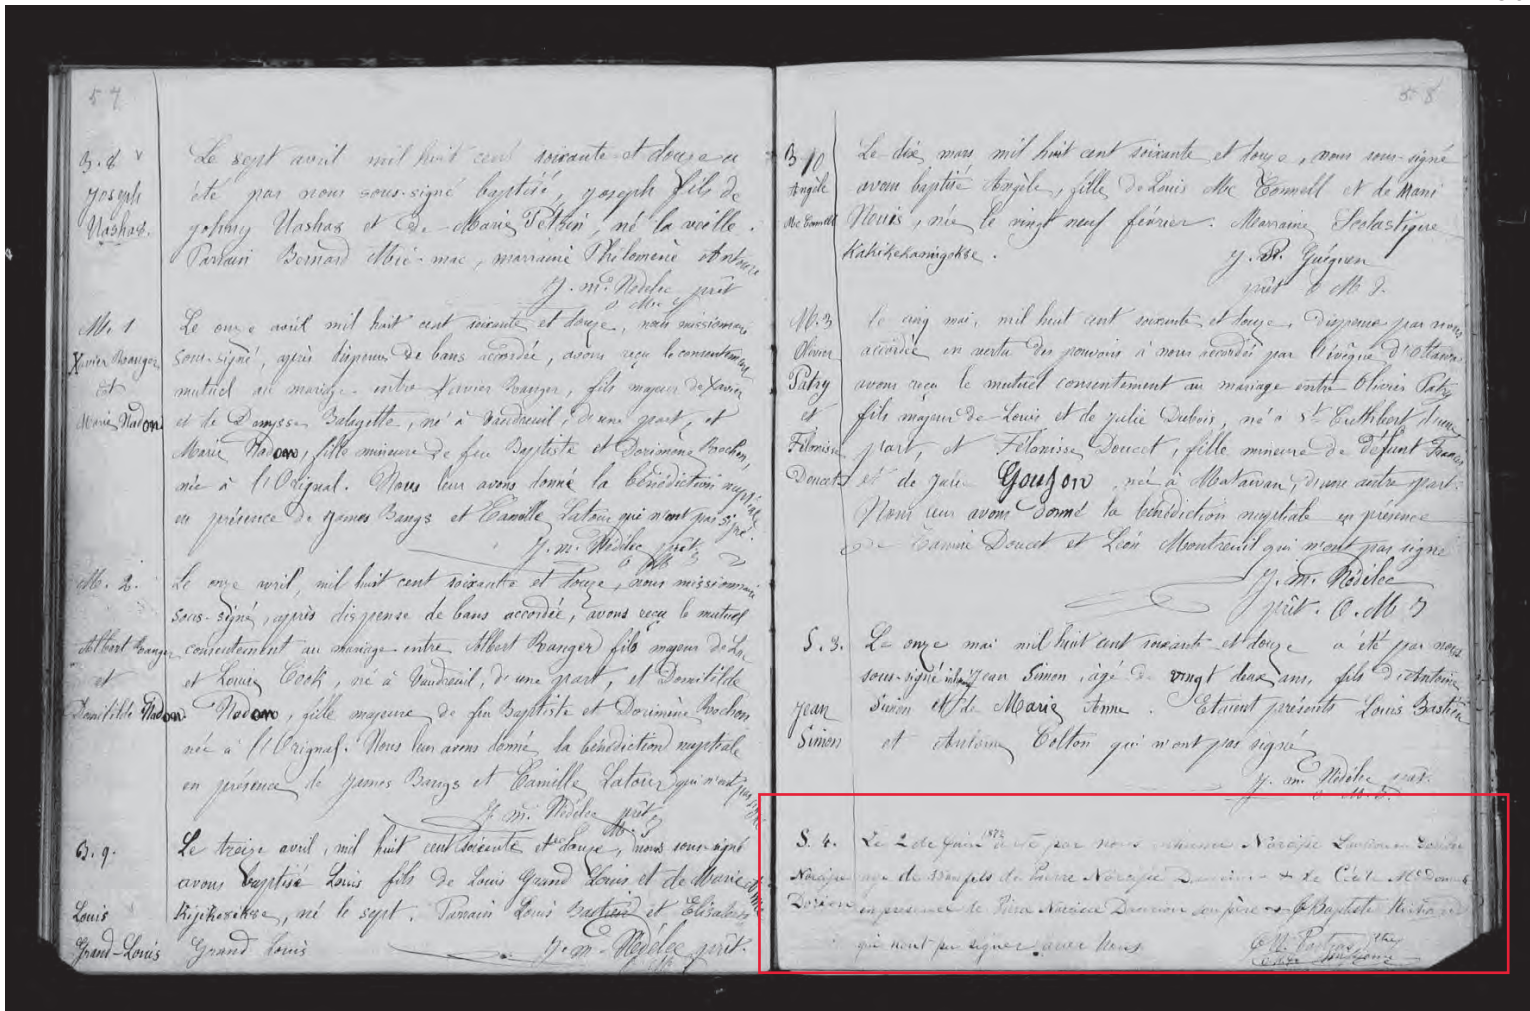 57
B. 8
Joseph
Uashas.
Le sept avril mil huit cent soixante et douze a
été par nous sous-signé baptisé, Joseph fils de
Johny Uashas et de Marie , né la veille.
Parrain Bernard Mic-mac, marraine Philomène
J. M. Nédélec prêt
M. 1
Xavier Ranger
et
Marie Nadon
Le onze avril mil huit cent soixante et douze, nous missionnaire
sous-signé, après dispense de bans accordée, avons reçu le consentement
mutuel au mariage entre Xavier Ranger, fils majeur de Xavier
et de , né à Vaudreuil, d'une part et
Marie Nadon, fille mineure de feu Baptiste et Dorimène Rochon,
née à l'Orignal. Nous leur avons donné la bénédiction nuptiale
en présence de James Bangs et Camille Latour qui n'ont pas signé.
J. M. Nédélec prêt.
M. 2.
Albert Ranger
et
Domitilde Nadon
Le onze avril, mil huit cent soixante et douze, nous missionnaire
sous-signé, après dispense de bans accordée, avons reçu le mutuel
consentement au mariage entre Albert Ranger fils majeur de
et Cook, né à Vaudreuil, d'une part, et Domitilde
Nadon, fille majeure de feu Baptiste et Dorimène Rochon
née à l'Orignal. Nous leur avons donné la bénédiction nuptiale
en présence de James Bangs et Camille Latour qui n'ont pas signé
J. M. Nédélec prêt
B. 9.
Louis
Grand-Louis
Le treize avril, mil huit cent soixante et douze, nous sous-signé
avons baptisé Louis fils de Louis Grand Louis et de Marie
, né le sept. Parrain Louis Bastien et Elisabeth
Grand Louis
J. M. Nédélec prêt.
58
B 10
Angèle
Mc Connell
Le dix mars mil huit cent soixante et douze, nous sous-signé
avons baptisé Angèle, fille de Louis Mc Connell et de Mani
, née le vingt neuf février. Marraine Scolastique
Kakikekamigokse.
J. P. Guéguen
prêt O M I.
M. 3
Olivier
Patry
et
Félonisse
Doucet
le cinq mai, mil huit cent soixante et douze, dispense par nous
accordée en vertu des pouvoirs à nous accordés par l'évêque d'Ottawa
avons reçu le mutuel consentement au mariage entre Olivier Patry
fils majeur de Louis et de Julie Dubois, né à St Cuthbert d'une
part, et Félonisse Doucet, fille mineure de défunt
et de Julie Goujon, née à Matawan, d'une autre part.
Nous leur avons donné la bénédiction nuptiale en présence
de Doucet et Léon Montreuil qui n'ont pas signé
J. M. Nédélec
prêt. O. M. I
S. 3.
Jean
Simon
Le onze mai mil huit cent soixante et douze a été par nous
sous-signé inhumé Jean Simon, agé de vingt deux ans, fils d'Antoine
Simon et de Marie Anne. Etaient présents Louis Bastien
et Antoine Colton qui n'ont pas signé
J. M. Nédélec prêt.
O. M. I.
S. 4.
Narcisse
Dorion
Le 2 de Juin 1872 a été par nous inhumé Narcisse
age de fils de Pierre Narcisse & de Cécile McDonald
en présence de Pierre Narcisse son père & Baptiste
qui n'ont pu signer avec nous.